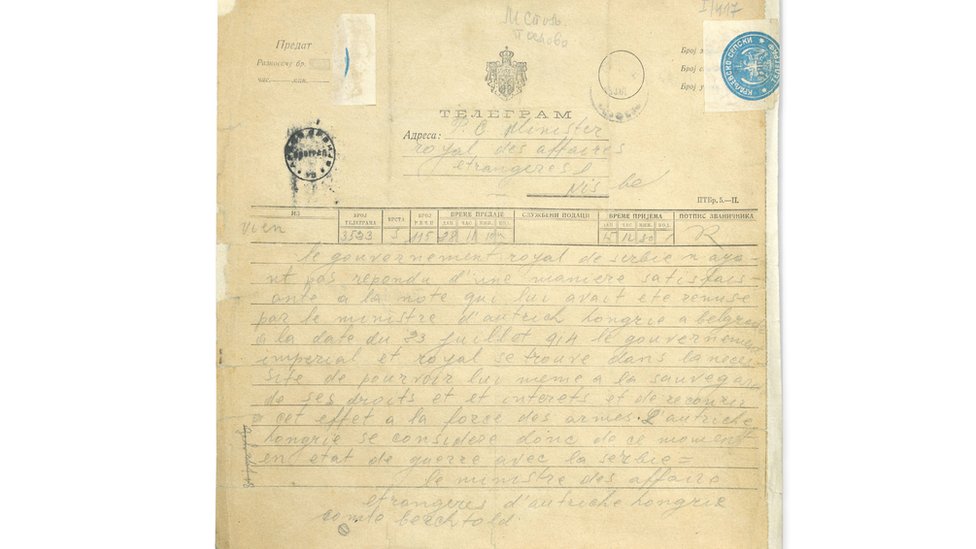 I/417
М Стол
Предат
Разносаче бр.
час. мин.
Број
Број
Број
КРАЉЕВСКО СРПСКИ
ТЕЛЕГРАМ
Адреса: Minister
royal des affaires
etrangeres
Nis
ПТБр. 5.—II.
ИЗ БРОЈ ТЕЛЕГРАМА ВРСТА БРОЈ РЕЧИ ВРЕМЕ ПРЕДАЈЕ СЛУЖБЕНИ ПОДАЦИ ВРЕМЕ ПРИЈЕМА ПОТПИС ЗВАНИЧНИКА
ДАН ЧАС МИН. ПОД. ДАН ЧАС МИН. ПОД.
Vien 3523 115 28 11 R
le gouvernement royal de serbie n aya-
nt pas rependu d'une maniere satisfais-
ante a la note qui lui avait ete remise
par le ministre d'autrich hongrie a belgrade
a la date du 23 juillot 914 le gouvernement
imperial et royal se trouve dans la neces
site de pourvoir lui meme a la sauvegar
de ses droits et et interets et de recourir
a cet effet a la force des armes. L'autriche
hongrie se considere donc de ce moment
en etat de guerre avec la serbie =
le ministre des affaire
etrangeres d'autriche hongrie
comte berchtold.